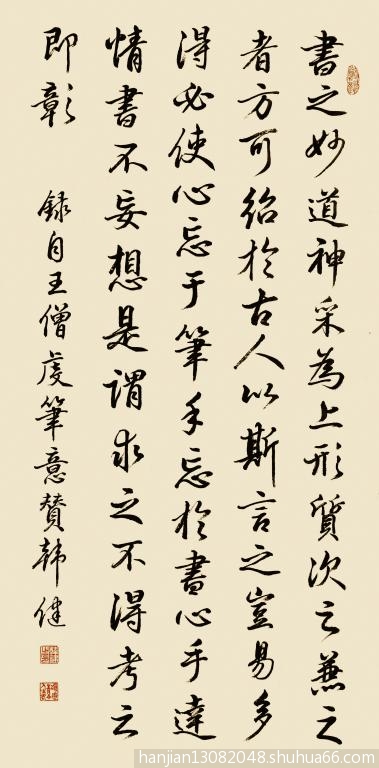 書之妙道神采為上形質次之兼之
者方可紹於古人以斯言之豈易多
得必使心忘于筆手忘於書心手達
情書不妄想是謂求之不得考之
即彰
錄自王僧虔筆意贊韓健
hanjian13082048.shuhua66.com